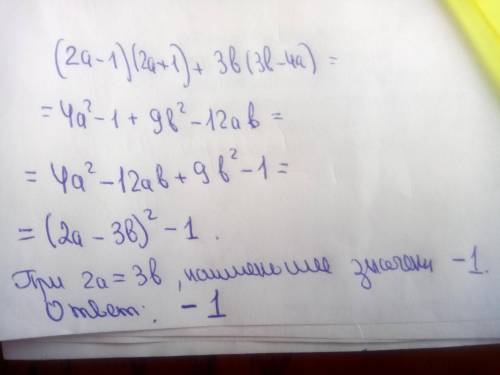 (2a-1)(2a+1) + 3b(3b-4a) =
= 4a² - 1 + 9b² - 12ab =
= 4a² - 12ab + 9b² - 1 =
= (2a - 3b)² - 1.
При 2a = 3b, наименьшее значени -1.
Ответ: -1